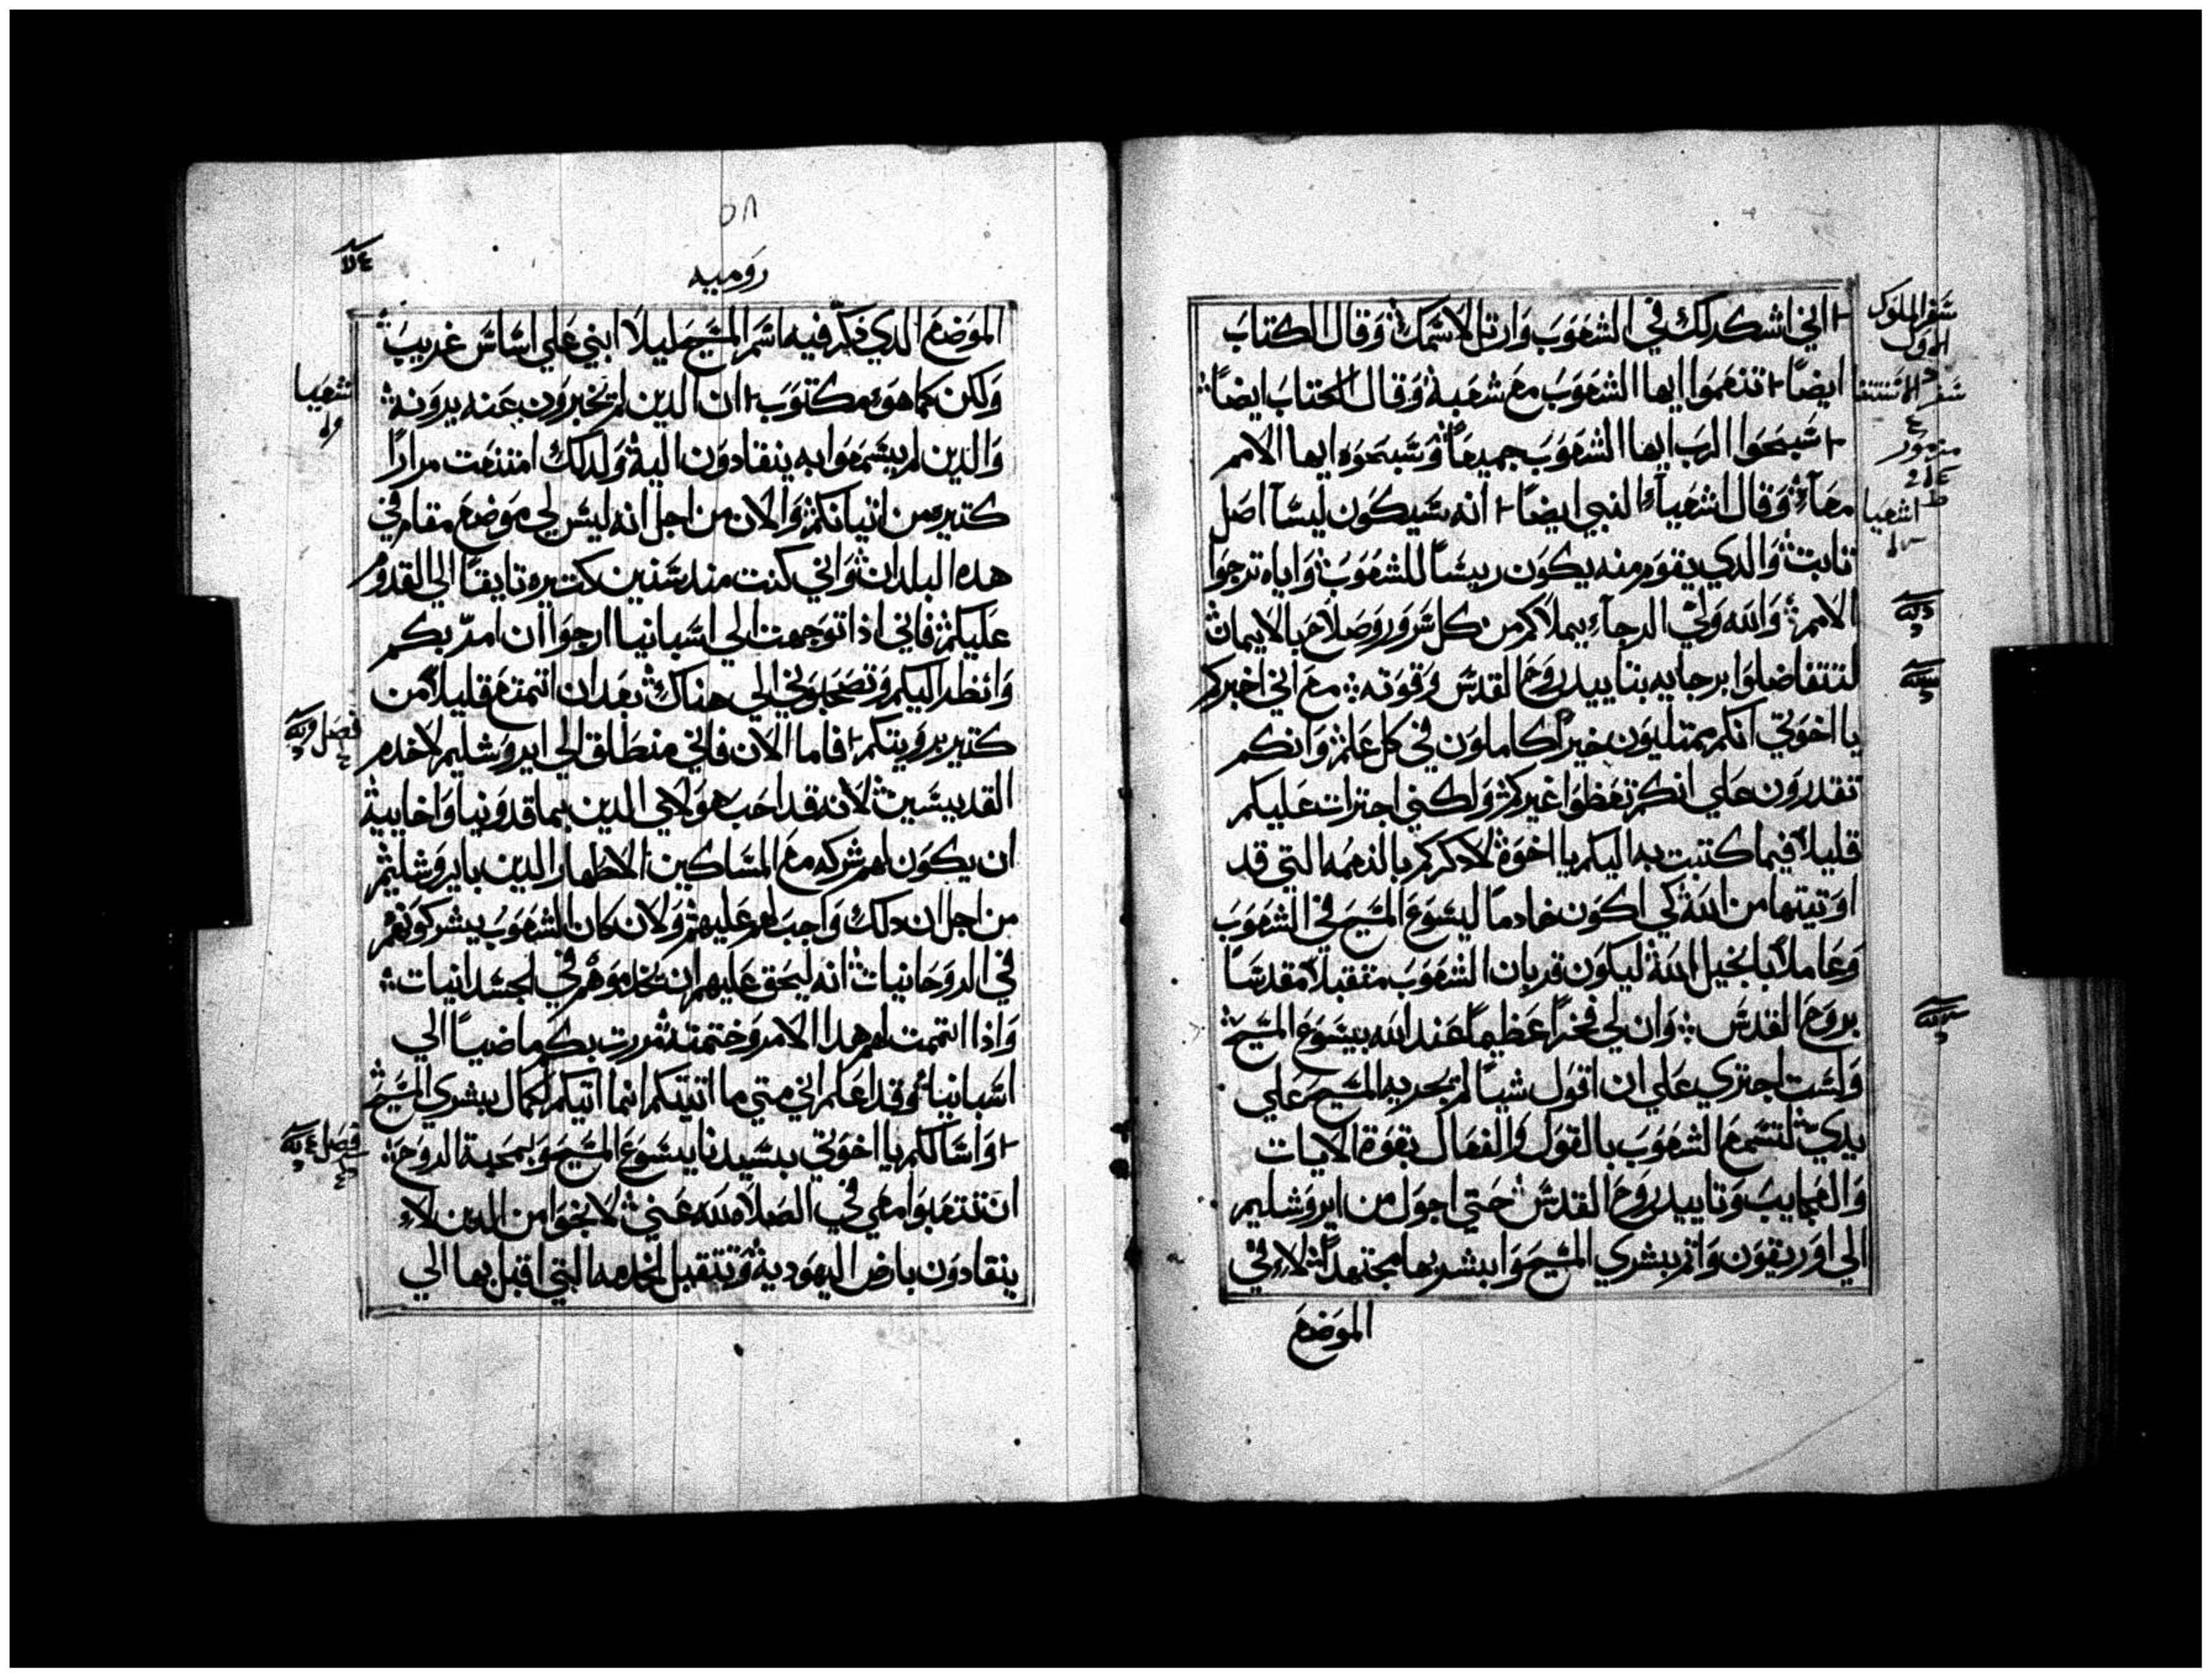 سفر الملوك
الاول
سفر الاستثنا
مزمور
اشعيا
اني اشكر لك في الشعوب وارتل لاسمك وقال الكتاب
ايضًا تنعموا ايها الشعوب مع شعبة وقال الكتاب ايضًا
سبحوا الرب ايها الشعوب جميعًا وسبحوه ايها الامم
معآ وقال اشعيآء النبي ايضًا انه سيكون ليسآ اصل
تابت والدي يقوم منه يكون رييسًا للشعوب واياه ترجوا
الامم والله ولي الرجاء يملاكم من كل سرور وصلاح بالايمان
لتتفاضلوا برجايه بتاييد روح القدس وقوته مع اني اخبركم
يا اخوتي انكم ممتليون خيرًا كاملون في كل علم وانكم
تقدرون علي انكم تعظوا غيركم ولكني اجترات عليكم
قليلاً فيما كتبت به اليكم يا اخوة لادكركم بالنعمه التي قد
اوتيتها من الله كي اكون خادمًا ليسوع المسيح في الشعوب
وعاملاً بانجيل الله ليكون قربان الشعوب متقبلاً مقدسًا
بروح القدس وان لي فخرًا عظيمًا عند الله بيسوع المسيح
ولست اجتري علي ان اقول شيًا لم يجريه المسيح علي
يدي لتسمع الشعوب بالقول والفعال بقوة الايات
والعجايب وتاييد روح القدس حتي اجول من ايروشليم
الي اوريقون واتم ببشري المسيح وابشر بها مجتهدًا لا في
الموضع
٥٨
روميه
الموضع الدي دكر فيه اسم المسيح ليلا ابني علي اساس غريب
ولكن كما هو مكتوب ان الدين لم يخبرون عنه يرونه
والدين لم يسمعوا به ينقادون الية ولدلك امتنعت مرارًا
كتيره من اتيانكم والان من اجل انه ليس لي موضع مقام في
هده البلدان واني كنت مند سنين كتيره تايقًا الي القدوم
عليكم فاني ادا توجهت الي اسبانيا ارجوا ان امر بكم
وانظر اليكم وتصحبوني الي هناك بعد ان اتمتع قليلاً من
كتير برويتكم فاما الان فاني منطلق الي ايروشليم لاخدم
القديسين لانه قد احب هولاي الدين بماقدونيا واخاييه
ان يكون لهم شركه مع المساكين الاطهار الدين بايروشليم
من اجل ان دلك واجب لهم عليهم ولان كان الشعوب يشركونهم
في الروحانيات انه ليحق عليهم ان يخدموهم في الجسدانيات
وادا اتممت لهم هدا الامر وختمته مررت بكم ماضيًا الي
اسبانيا وقد اعلم اني متي ما اتيتكم انما اتيكم بكمال ببشري المسيح
واسالكم يا اخوتي بسيدنا يسوع المسيح وبمحبة الروح
ان تتعبوا معي في الصلاه لله عني لانجوا من الدين لا
ينقادون بارض اليهودية وتتقبل الخدمه التي اقبل بها الي
شعيا
فصل
فصل